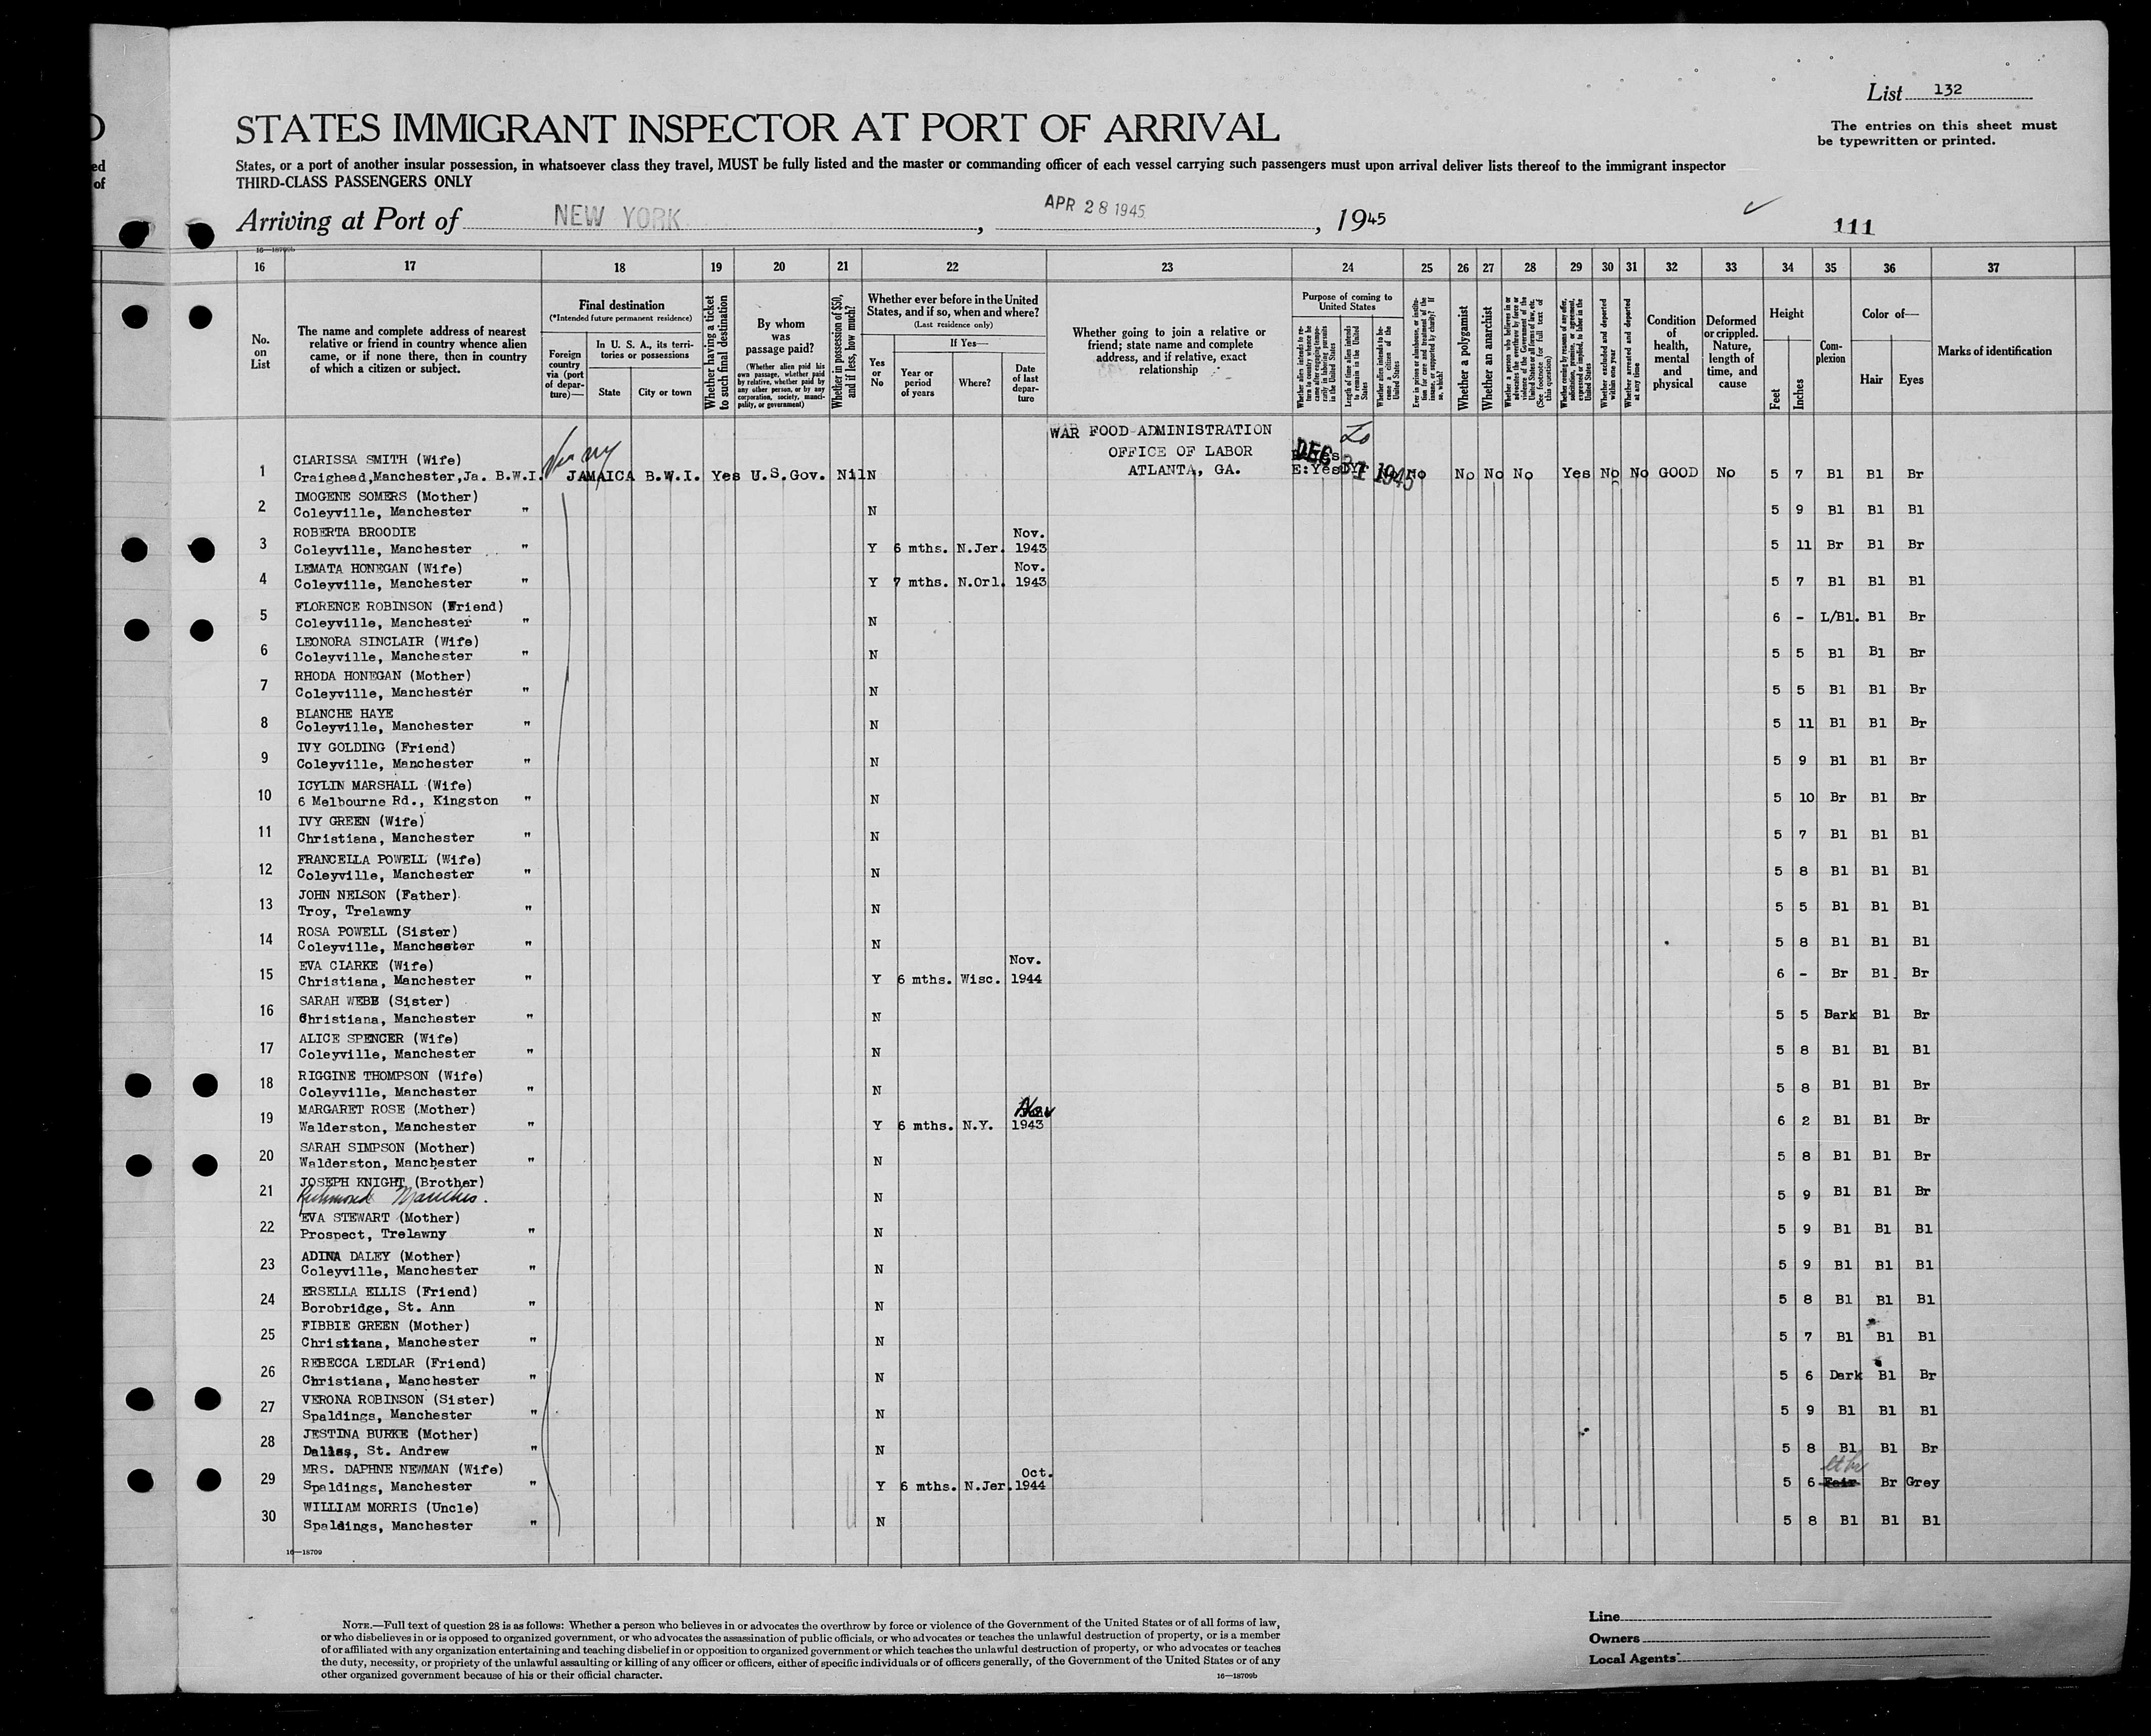 List 132
The entries on this sheet must
be typewritten or printed.
STATES IMMIGRANT INSPECTOR AT PORT OF ARRIVAL
States, or a port of another insular possession, in whatsoever class they travel, MUST be fully listed and the master or commanding officer of each vessel carrying such passengers must upon arrival deliver lists thereof to the immigrant inspector
THIRD-CLASS PASSENGERS ONLY
ed
of
Arriving at Port of NEW YORK, APR 28 1945, 1945
111
16 17 18 19 20 21 22 23 24 25 26 27 28 29 30 31 32 33 34 35 36 37
No. on List
The name and complete address of nearest relative or friend in country whence alien came, or if none there, then in country of which a citizen or subject.
Final destination
(*Intended future permanent residence)
Foreign country via (port of departure)—
In U. S. A., its territories or possessions
State
City or town
Whether having a ticket to such final destination
By whom was passage paid?
(Whether alien paid his own passage, whether paid by relative, whether paid by any other person, or by any corporation, society, municipality, or government)
Whether in possession of $50, and if less, how much?
Whether ever before in the United States, and if so, when and where?
(Last residence only)
Yes or No
If Yes—
Year or period of years
Where?
Date of last departure
Whether going to join a relative or friend; state name and complete address, and if relative, exact relationship
Purpose of coming to United States
Length of time alien intends to remain in the United States
Whether alien intends to become a citizen of the United States
Whether a polygamist
Whether an anarchist
Whether excluded and deported within one year
Whether arrested and deported at any time
Condition of health, mental and physical
Deformed or crippled. Nature, length of time, and cause
Height
Feet
Inches
Complexion
Color of—
Hair
Eyes
Marks of identification
WAR FOOD ADMINISTRATION
OFFICE OF LABOR
ATLANTA, GA.
DEC 31 1945
1 CLARISSA SMITH (Wife)
Craighead,Manchester,Ja. B.W.I. JAMAICA B.W.I. Yes U.S.Gov. Nil N E:Yes No No No No Yes No No GOOD No 5 7 Bl Bl Br
2 IMOGENE SOMERS (Mother)
Coleyville, Manchester " N 5 9 Bl Bl Bl
3 ROBERTA BROODIE Nov.
Coleyville, Manchester " Y 6 mths. N.Jer. 1943 5 11 Br Bl Br
4 LEMATA HONEGAN (Wife) Nov.
Coleyville, Manchester " Y 7 mths. N.Orl. 1943 5 7 Bl Bl Bl
5 FLORENCE ROBINSON (Friend)
Coleyville, Manchester " N 6 - L/Bl. Bl Br
6 LEONORA SINCLAIR (Wife)
Coleyville, Manchester " N 5 5 Bl Bl Br
7 RHODA HONEGAN (Mother)
Coleyville, Manchester " N 5 5 Bl Bl Br
8 BLANCHE HAYE
Coleyville, Manchester " N 5 11 Bl Bl Br
9 IVY GOLDING (Friend)
Coleyville, Manchester " N 5 9 Bl Bl Br
10 ICYLIN MARSHALL (Wife)
6 Melbourne Rd., Kingston " N 5 10 Br Bl Br
11 IVY GREEN (Wife)
Christiana, Manchester " N 5 7 Bl Bl Bl
12 FRANCELLA POWELL (Wife)
Coleyville, Manchester " N 5 8 Bl Bl Bl
13 JOHN NELSON (Father)
Troy, Trelawny " N 5 5 Bl Bl Bl
14 ROSA POWELL (Sister)
Coleyville, Manchester " N 5 8 Bl Bl Bl
15 EVA CLARKE (Wife) Nov.
Christiana, Manchester " Y 6 mths. Wisc. 1944 6 - Br Bl Br
16 SARAH WEBB (Sister)
Christiana, Manchester " N 5 5 Dark Bl Br
17 ALICE SPENCER (Wife)
Coleyville, Manchester " N 5 8 Bl Bl Bl
18 RIGGINE THOMPSON (Wife)
Coleyville, Manchester " N 5 8 Bl Bl Br
19 MARGARET ROSE (Mother) Nov
Walderston, Manchester " Y 6 mths. N.Y. 1943 6 2 Bl Bl Br
20 SARAH SIMPSON (Mother)
Walderston, Manchester " N 5 8 Bl Bl Br
21 JOSEPH KNIGHT (Brother)
Richmond Manches. N 5 9 Bl Bl Br
22 EVA STEWART (Mother)
Prospect, Trelawny " N 5 9 Bl Bl Bl
23 ADINA DALEY (Mother)
Coleyville, Manchester " N 5 9 Bl Bl Bl
24 ERSELLA ELLIS (Friend)
Borobridge, St. Ann " N 5 8 Bl Bl Bl
25 FIBBIE GREEN (Mother)
Christiana, Manchester " N 5 7 Bl Bl Bl
26 REBECCA LEDLAR (Friend)
Christiana, Manchester " N 5 6 Dark Bl Br
27 VERONA ROBINSON (Sister)
Spaldings, Manchester " N 5 9 Bl Bl Bl
28 JESTINA BURKE (Mother)
Dallas, St. Andrew " N 5 8 Bl Bl Br
29 MRS. DAPHNE NEWMAN (Wife) Oct.
Spaldings, Manchester " Y 6 mths. N.Jer. 1944 5 6 Fair Br Grey
30 WILLIAM MORRIS (Uncle)
Spaldings, Manchester " N 5 8 Bl Bl Bl
16—18709
NOTE.—Full text of question 28 is as follows: Whether a person who believes in or advocates the overthrow by force or violence of the Government of the United States or of all forms of law,
or who disbelieves in or is opposed to organized government, or who advocates the assassination of public officials, or who advocates or teaches the unlawful destruction of property, or is a member
of or affiliated with any organization entertaining and teaching disbelief in or opposition to organized government or which teaches the unlawful destruction of property, or who advocates or teaches
the duty, necessity, or propriety of the unlawful assaulting or killing of any officer or officers, either of specific individuals or of officers generally, of the Government of the United States or of any
other organized government because of his or their official character.
16—18709b
Line
Owners
Local Agents